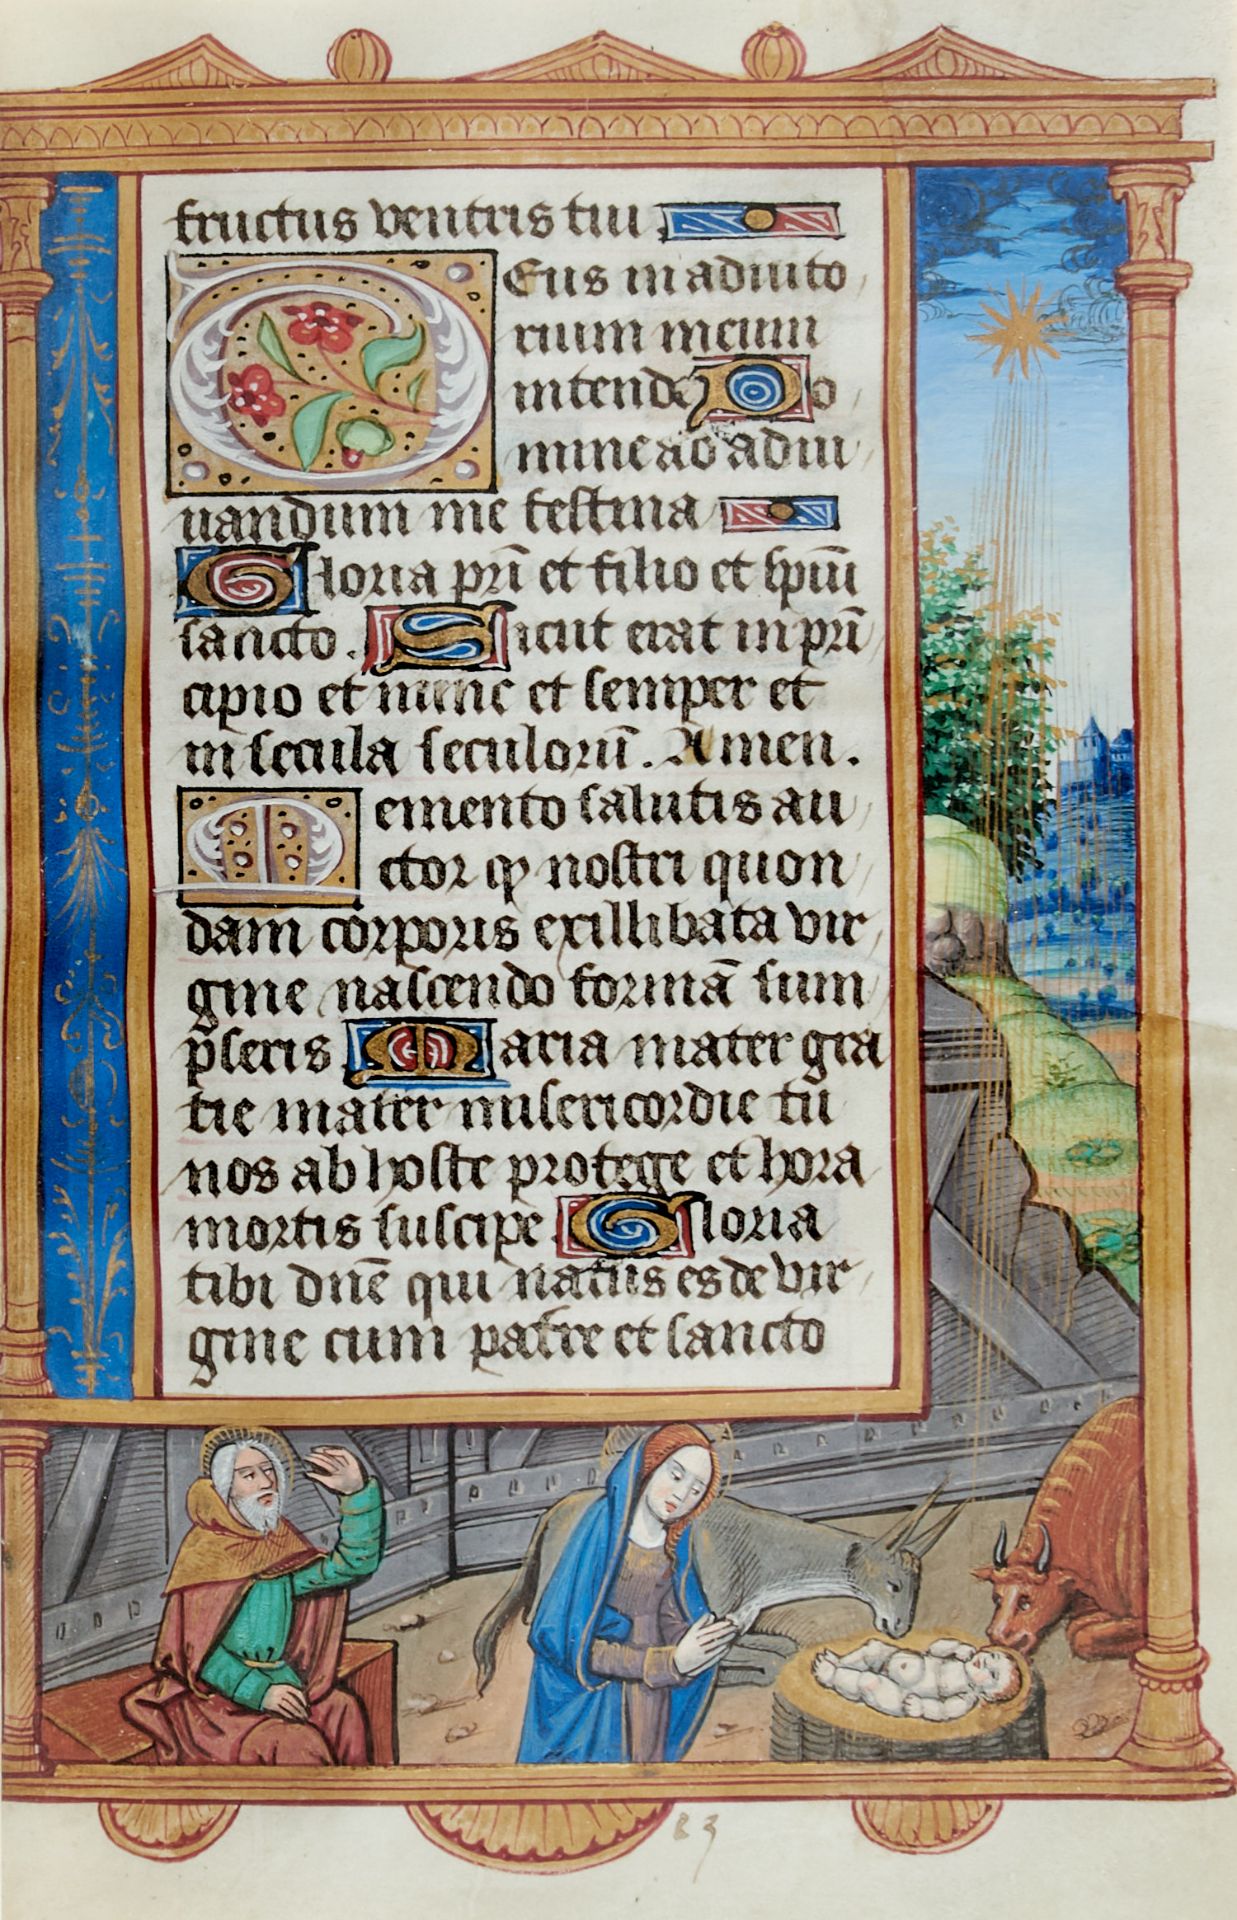 fructus ventris tui
Deus in adiuto
rium meum
intende Do
mine ad adiu
uandum me festina
Gloria pri̅ et filio et spiui̅
sancto. Sicut erat in pri̅
cipio et nunc et semper et
in secula seculoru̅. Amen.
Memento salutis au
ctor ꝙ nostri quon
dam corporis exillibata vir
gine nascendo forma̅ sum
pseris Maria mater gra
tie mater misericordie tu
nos ab hoste protege et hora
mortis suscipe Gloria
tibi dn̅e qui natus es de vir
gine cum patre et sancto